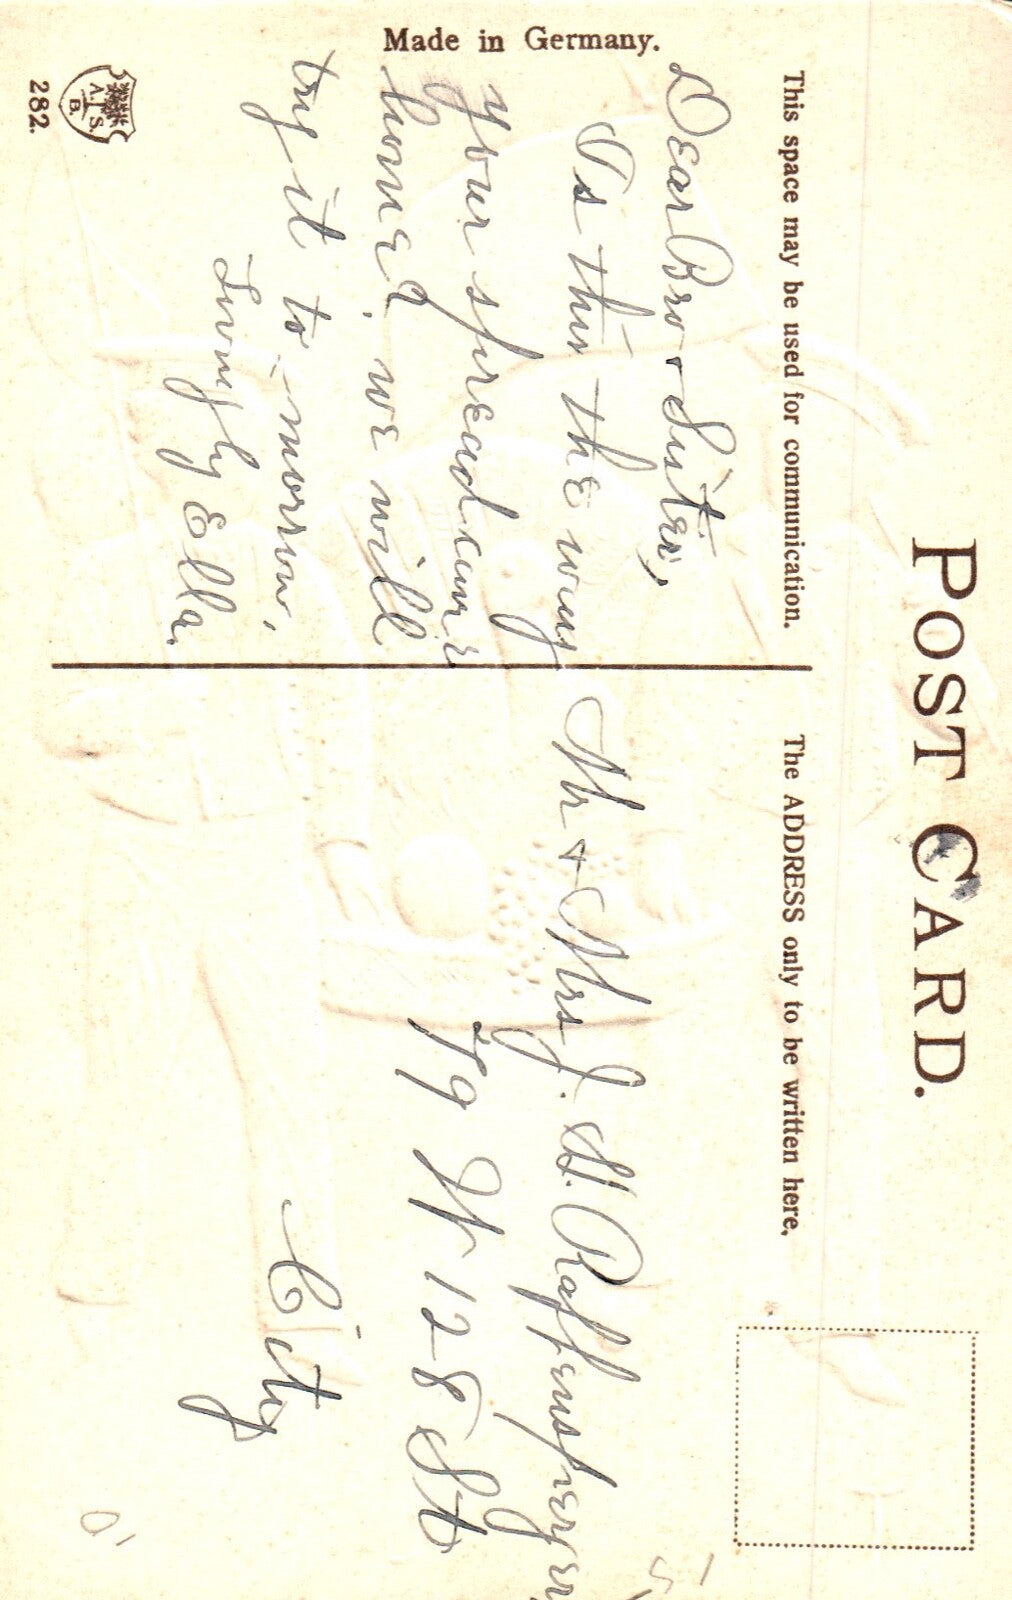 POST CARD.
This space may be used for communication.
The ADDRESS only to be written here.
Made in Germany.
A. S.
B.
282.
Dear Bro + Sister,
Is this the way
your spread
home? we will
try it to-morrow,
Lovingly Ella.
Mr + Mrs J. S. Raffensperger
W 128 St
City